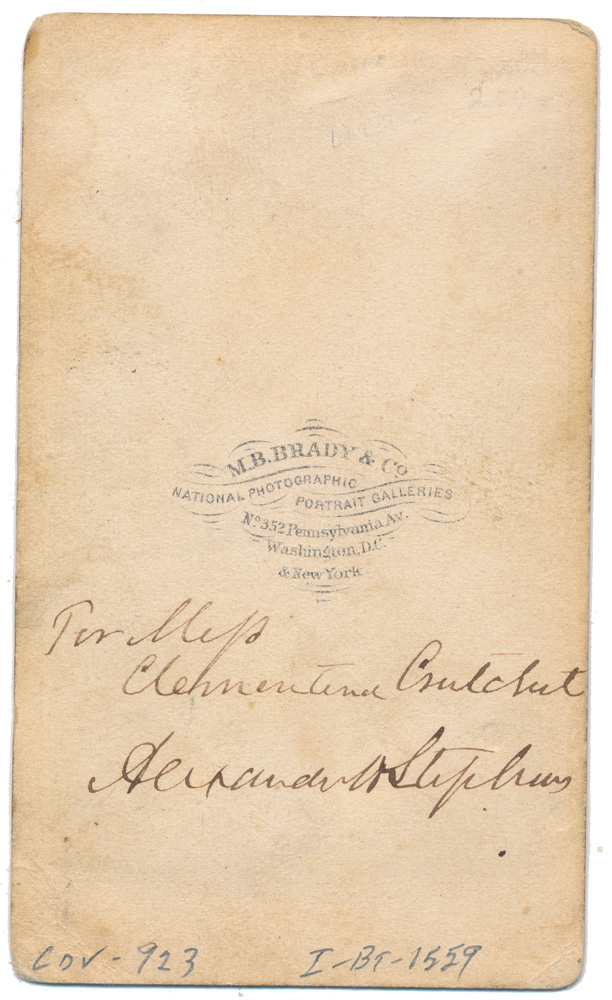 M.B. BRADY & Co
NATIONAL PHOTOGRAPHIC
PORTRAIT GALLERIES
No 352 Pennsylvania Av.
Washington, D.C.
& New York
For Miss
Clementina Crutchet
Alexander H Stephens
CDV-923 I-BT-1559